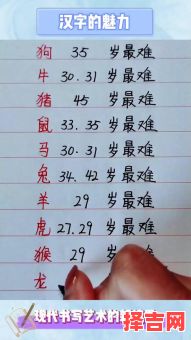 汉字的魅力
狗 35 岁最难
牛 30.31 岁最难
猪 45 岁最难
鼠 33.35 岁最难
马 30.31 岁最难
兔 34.42 岁最难
羊 29 岁最难
虎 27.29 岁最难
猴 29 岁最难
龙
现代书写艺术的
择吉网